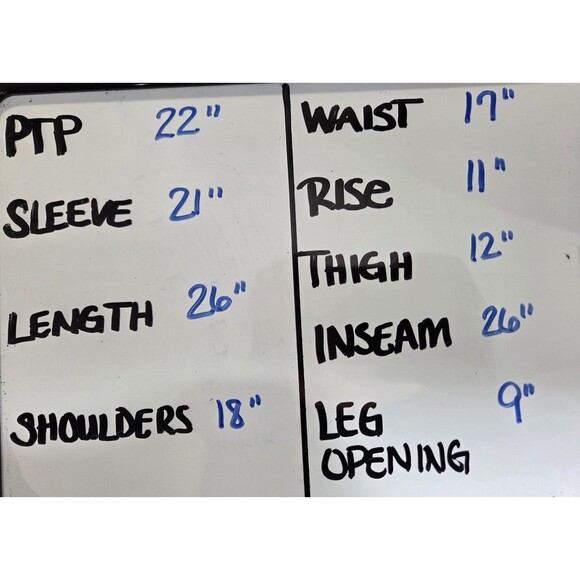 PTP 22"
SLEEVE 21"
LENGTH 26"
SHOULDERS 18"
WAIST 17"
RISE 11"
THIGH 12"
INSEAM 26"
LEG 9"
OPENING